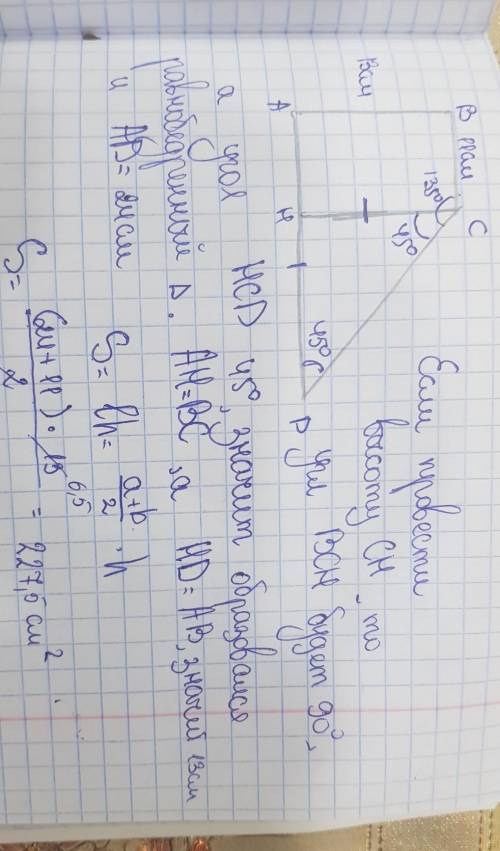 B 11см C
135°
45°
13см
A H 45° D
Если провести
высоту CH, то
угол BCH будет 90°,
а угол HCD 45°, значит образовался
равнобедренный Δ. AH=BC, а HD=AB, значит 13см
и AD=24см S=lh= a+b/2 · h
S= (24+11)·13/2 6,5 = 227,5 см².